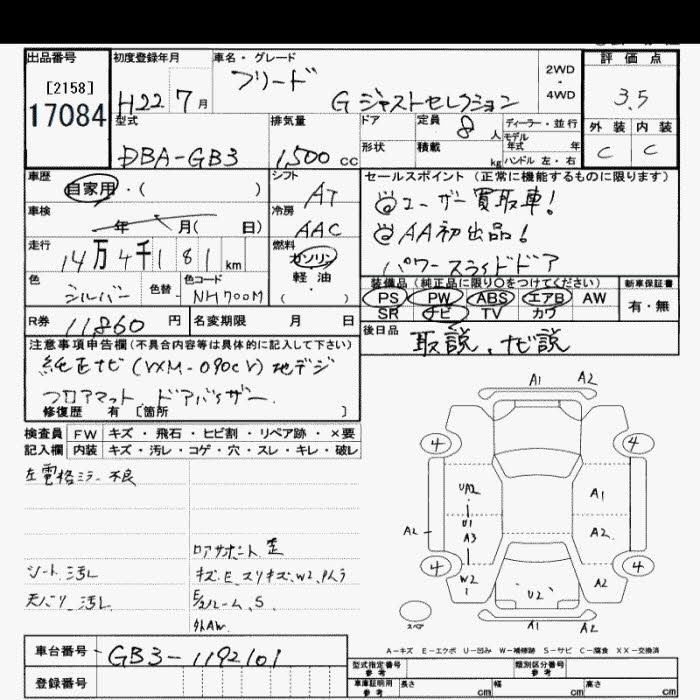 出品番号
[2158]
17084
初度登録年月
H22 7 月
車名・グレード
フリード
G ジャストセレクション
2WD
・
4WD
評価点
3.5
外装 内装
C C
型式
DBA-GB3
排気量
1,500 CC
ドア
形状
定員
8 人
積載
kg
ディーラー・並行
モデル
年式 年
ハンドル 左・右
車歴
自家用・( )
シフト
AT
車検
年 月( 日)
冷房
AAC
走行
14万4千181 km
燃料
ガソリン
・
軽油
( )
色
シルバー
色替
色コード
NH700M
R券
11860 円
名変期限 月 日
セールスポイント(正常に機能するものに限ります)
◎ユーザー買取車!
◎AA初出品!
パワースライドドア
装備品(純正品に限り○をつけてください)
PS PW ABS エアB AW
SR ナビ TV カワ
新車保証書
有・無
後日品
取説、ナビ説
注意事項申告欄(不具合内容等は具体的に記入して下さい)
純正ナビ(VXM-090CV)地デジ
フロアマット、ドアバイザー、
修復歴 有 [箇所 ]
検査員 FW キズ・飛石・ヒビ割・リペア跡・×要
記入欄 内装 キズ・汚レ・コゲ・穴・スレ・キレ・破レ
左電格ミラー不良
シート汚レ
天バリ汚レ
ロアサポート歪
キズ、E、スリキズ、W2、Pムラ
E/ルーム、S
外AW
A1 A2
4 4
UA2
U1
A3
W2
A1
A2
A2
A2
4 4
U2
A1 A2
スペア
A-キズ E-エクボ U-凹み W-補修跡 S-サビ C-腐食 XX-交換済
車台番号
GB3-1192101
登録番号
型式指定番号
参考
類別区分番号
参考
車庫証明用
参考
長さ cm 幅 cm 高さ cm